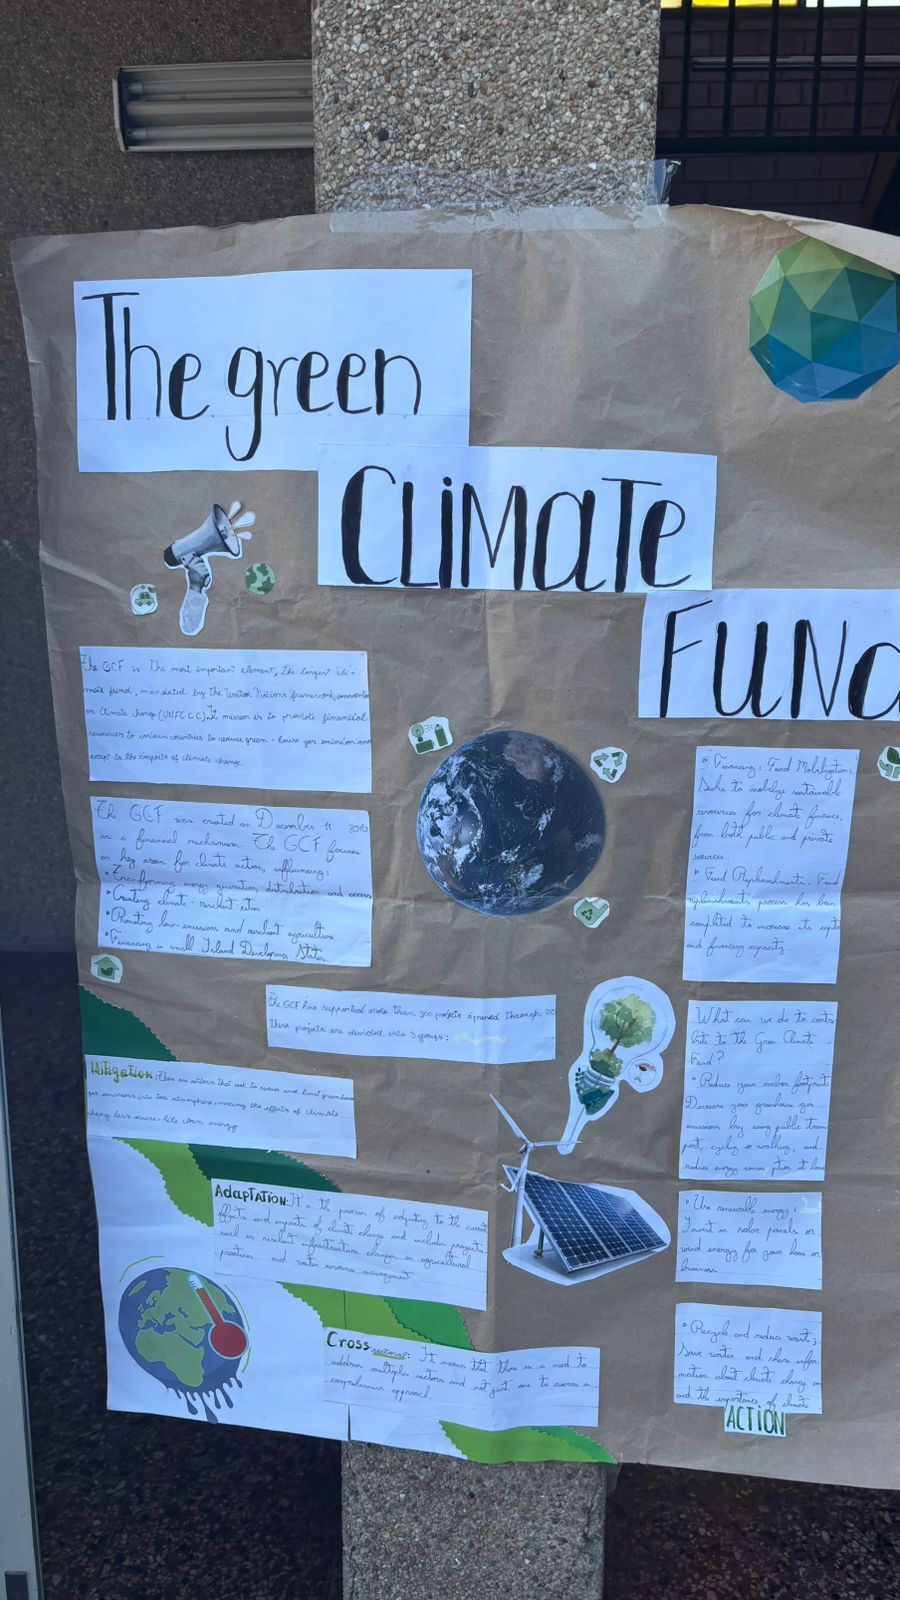 The green
CLiMaTe
FUNd
The GCF is the most important element, the largest cli-
mate fund, mandated by the United Nations framework convention
on Climate change (UNFCCC). It mission is to provide financial
resources to various countries to reduce green-house gas emission and
adapt to the impacts of climate change
The GCF was created on December 11 2010
as a financial mechanism. The GCF focuses
on key areas for climate action, influencing:
• Transforming energy generation, distribution and access
• Creating climate-resilient cities
• Promoting low-emissions and resilient agriculture
• Financing in small Island Developing States.
The GCF has supported more than 300 projects approved through
These projects are devided into 3 groups:
Mitigation: These are actions that seek to reduce and limit greenhouse
gas emissions into the atmosphere, making the effects of climate
change less severe. like clean energy
Adaptation: It is the process of adjusting to the current
effects and impacts of climate change and includes projects
such as resilient infrastructure changes in agricultural
practices and water resource management
Cross-sectoral: It means that there is a need to
address multiple sectors and not just one to assure a
comprehensive approach.
• Financing: Fund Mobilization:
Seeks to mobilize sustainable
resources for climate finance,
from both public and private
sources.
• Fund Replenishments. Fund
replenishments process has been
completed to increase its capital
and financing capacity.
What can we do to contri-
bute to the Green Climate
Fund?
• Reduce your carbon footprint
Decrease your greenhouse gas
emissions by using public trans
port, cycling or walking, and
reduce energy consumption at home
• Use renewable energy:
Invest in solar panels or
wind energy for your home or
business
• Recycle and reduce waste;
Save water and share infor-
mation about climate change an
and the importance of climate
ACTION